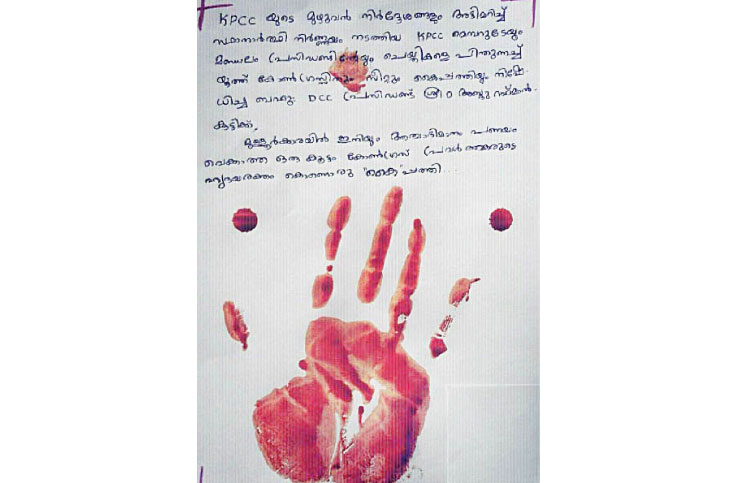 KPCC യുടെ മുഴുവൻ നിർദ്ദേശങ്ങളും അട്ടിമറിച്ച്
സ്ഥാനാർത്ഥി നിർണ്ണയം നടത്തിയ KPCC മെമ്പറുടേയും
മണ്ഡലം പ്രസിഡണ്ടിന്റേയും ചെയ്തികളെ പിന്തുണച്ച്
യൂത്ത് കോൺഗ്രസ്സിനും സീറ്റും കൈപ്പത്തിയും നിഷേ
ധിച്ച ബഹു: DCC പ്രസിഡണ്ട് ശ്രീ O അബ്ദു റഹ്മാൻ
കുട്ടിക്ക്,
മുള്ളൂർക്കരയിൽ ഇനിയും ആത്മാഭിമാനം പണയം
വെക്കാത്ത ഒരു കൂട്ടം കോൺഗ്രസ് പ്രവർത്തകരുടെ
ഹൃദയരക്തം കൊണ്ടൊരു "കൈ"പ്പത്തി...